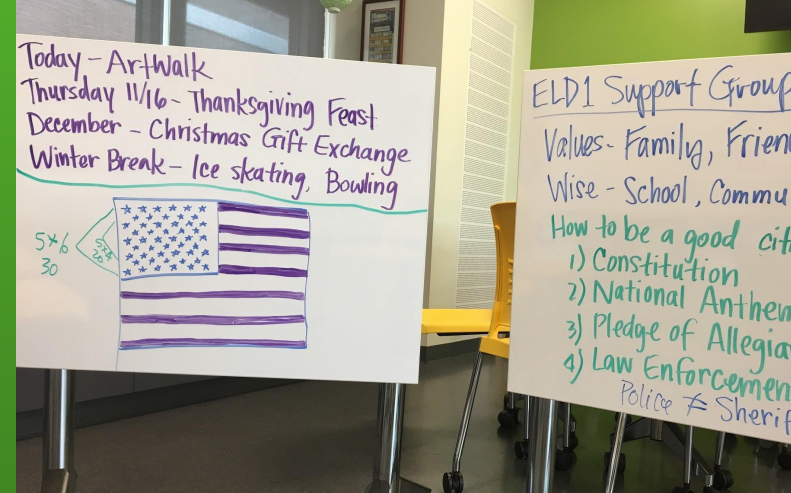 Today - ArtWalk
Thursday 11/16 - Thanksgiving Feast
December - Christmas Gift Exchange
Winter Break - Ice skating, Bowling
5x6
30
5x4
20
ELD1 Support Group
Values - Family, Frien
Wise - School, Commu
How to be a good cit
1) Constitution
2) National Anthem
3) Pledge of Allegia
4) Law Enforcemen
Police ≠ Sherif